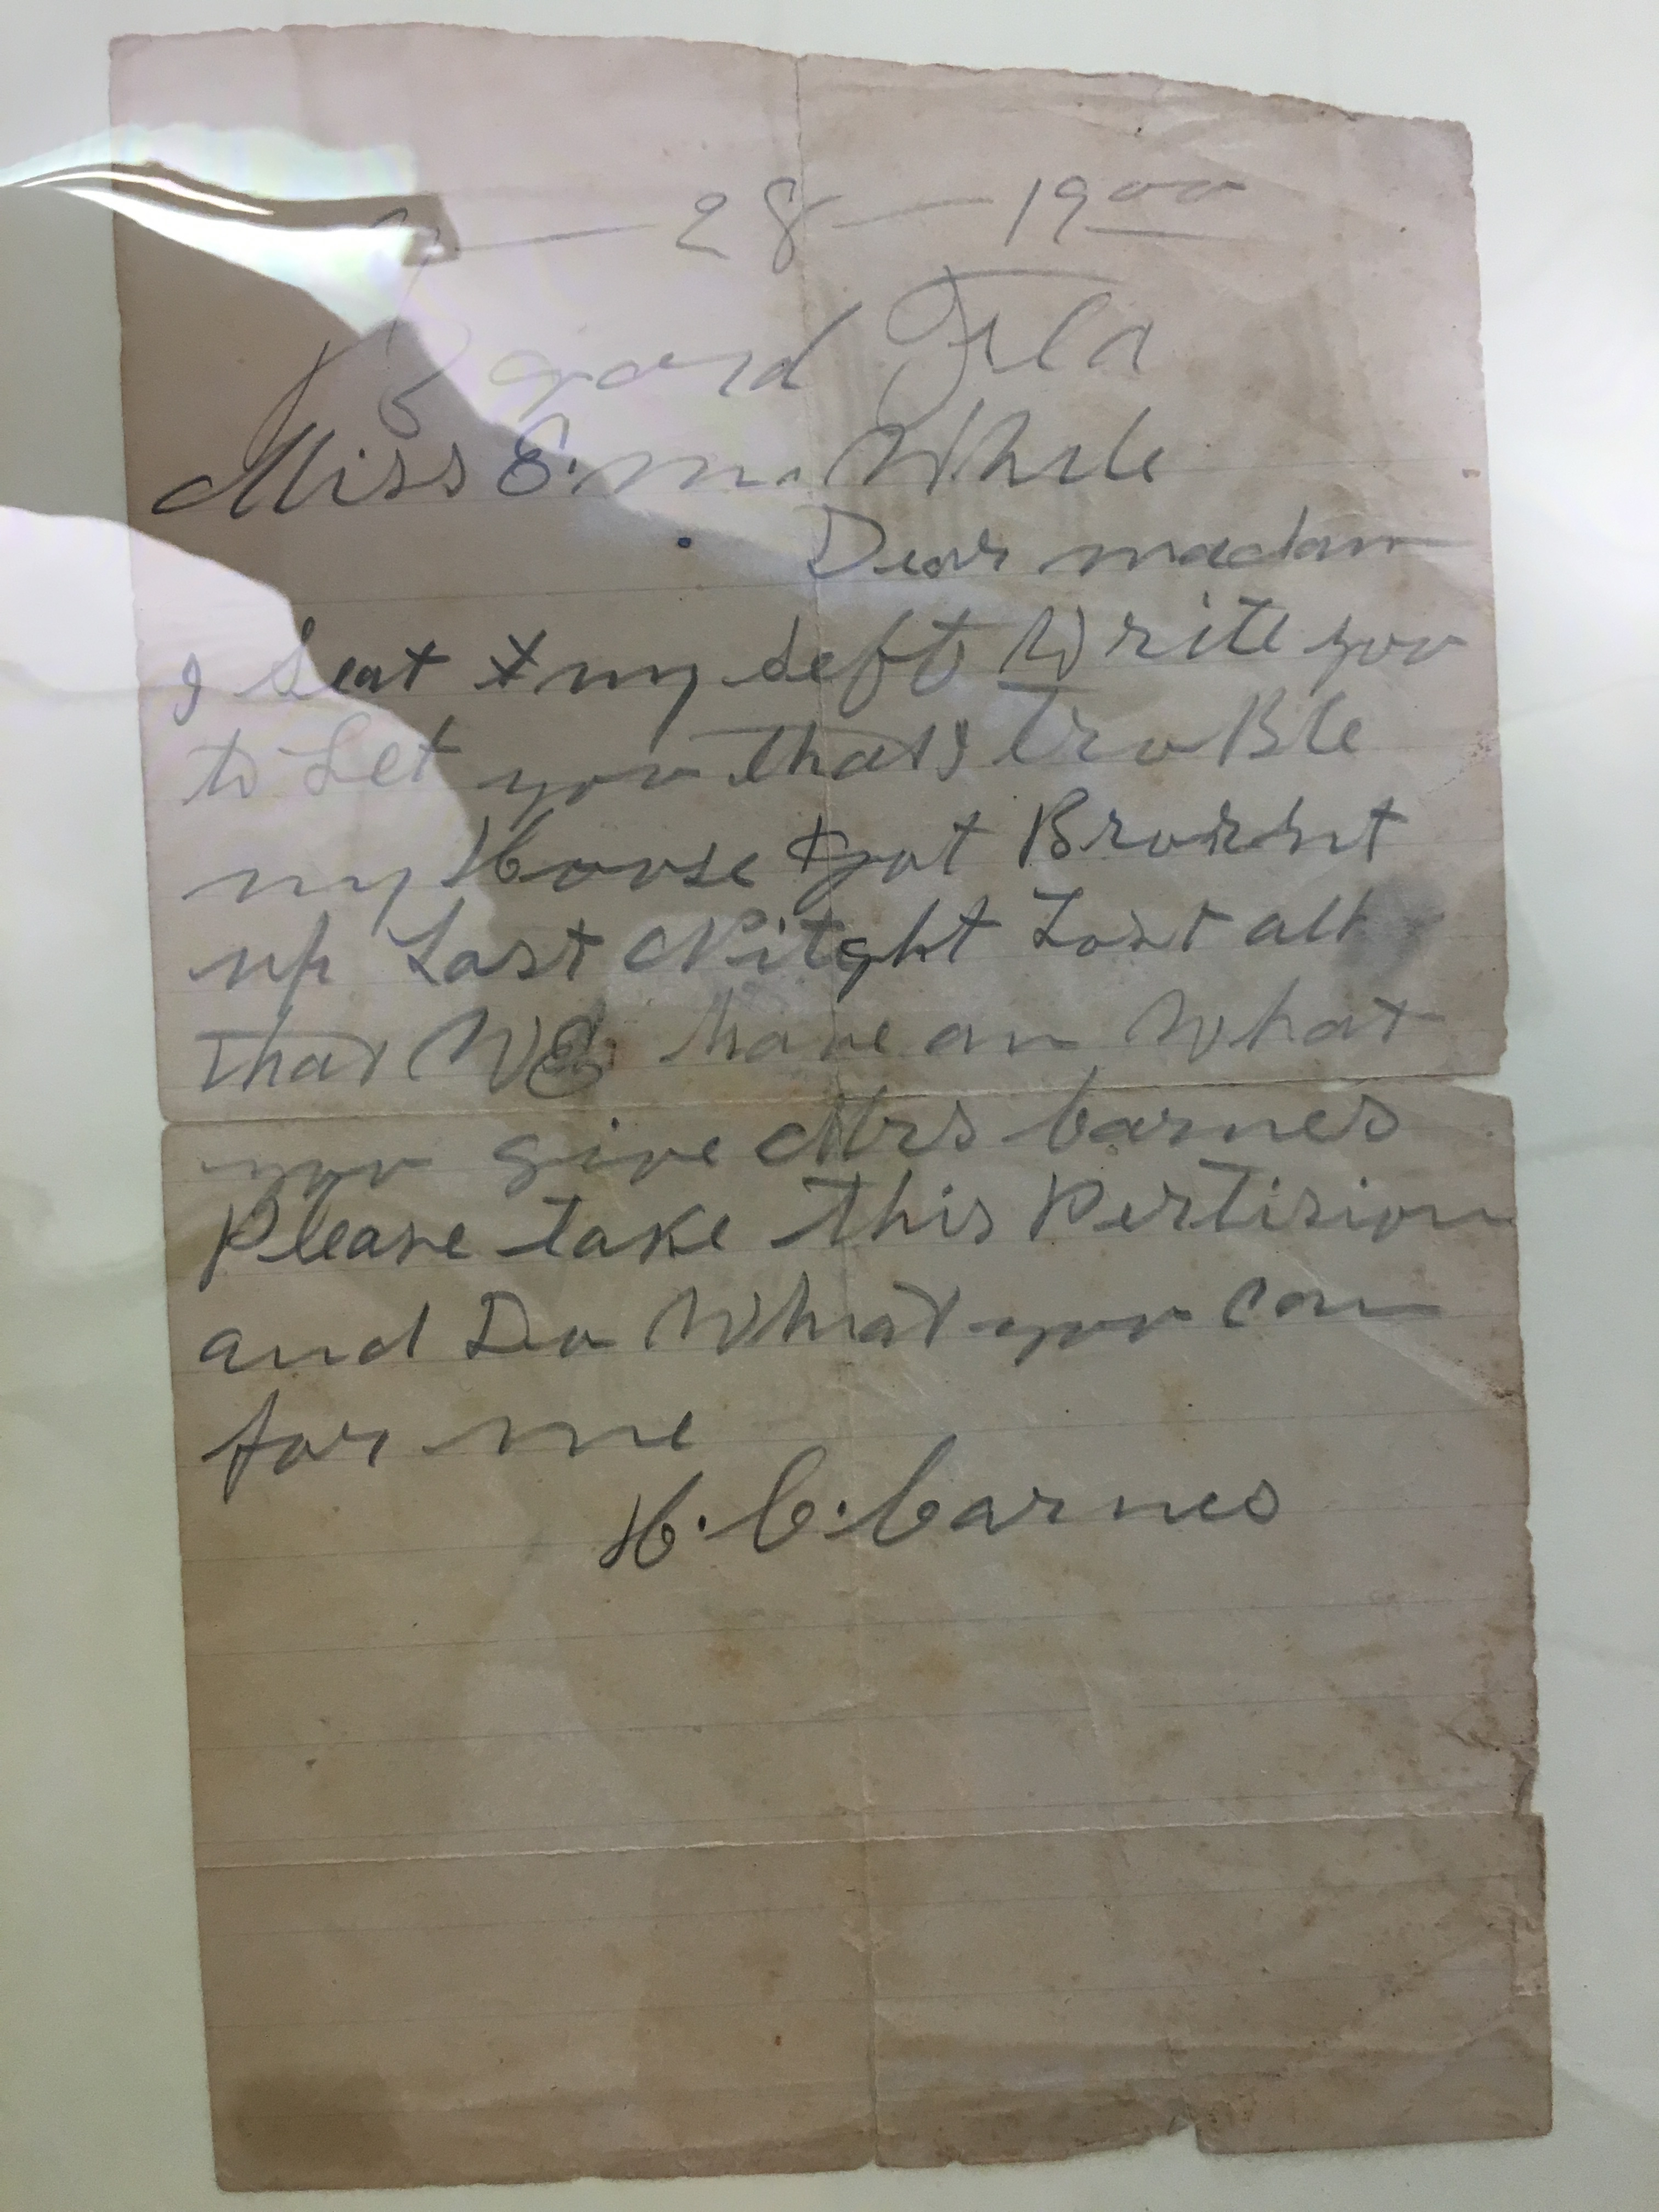 — 28 — 1900
Fla
Miss E. m. White
Dear madam
I Seat my Seft Write you
to Let you that I TroBle
my House got
up Last Nitght Lost all
that We have an What
you give Mrs barnes
Please take this Pertision
and Do What you Can
for me
H. C. barnes